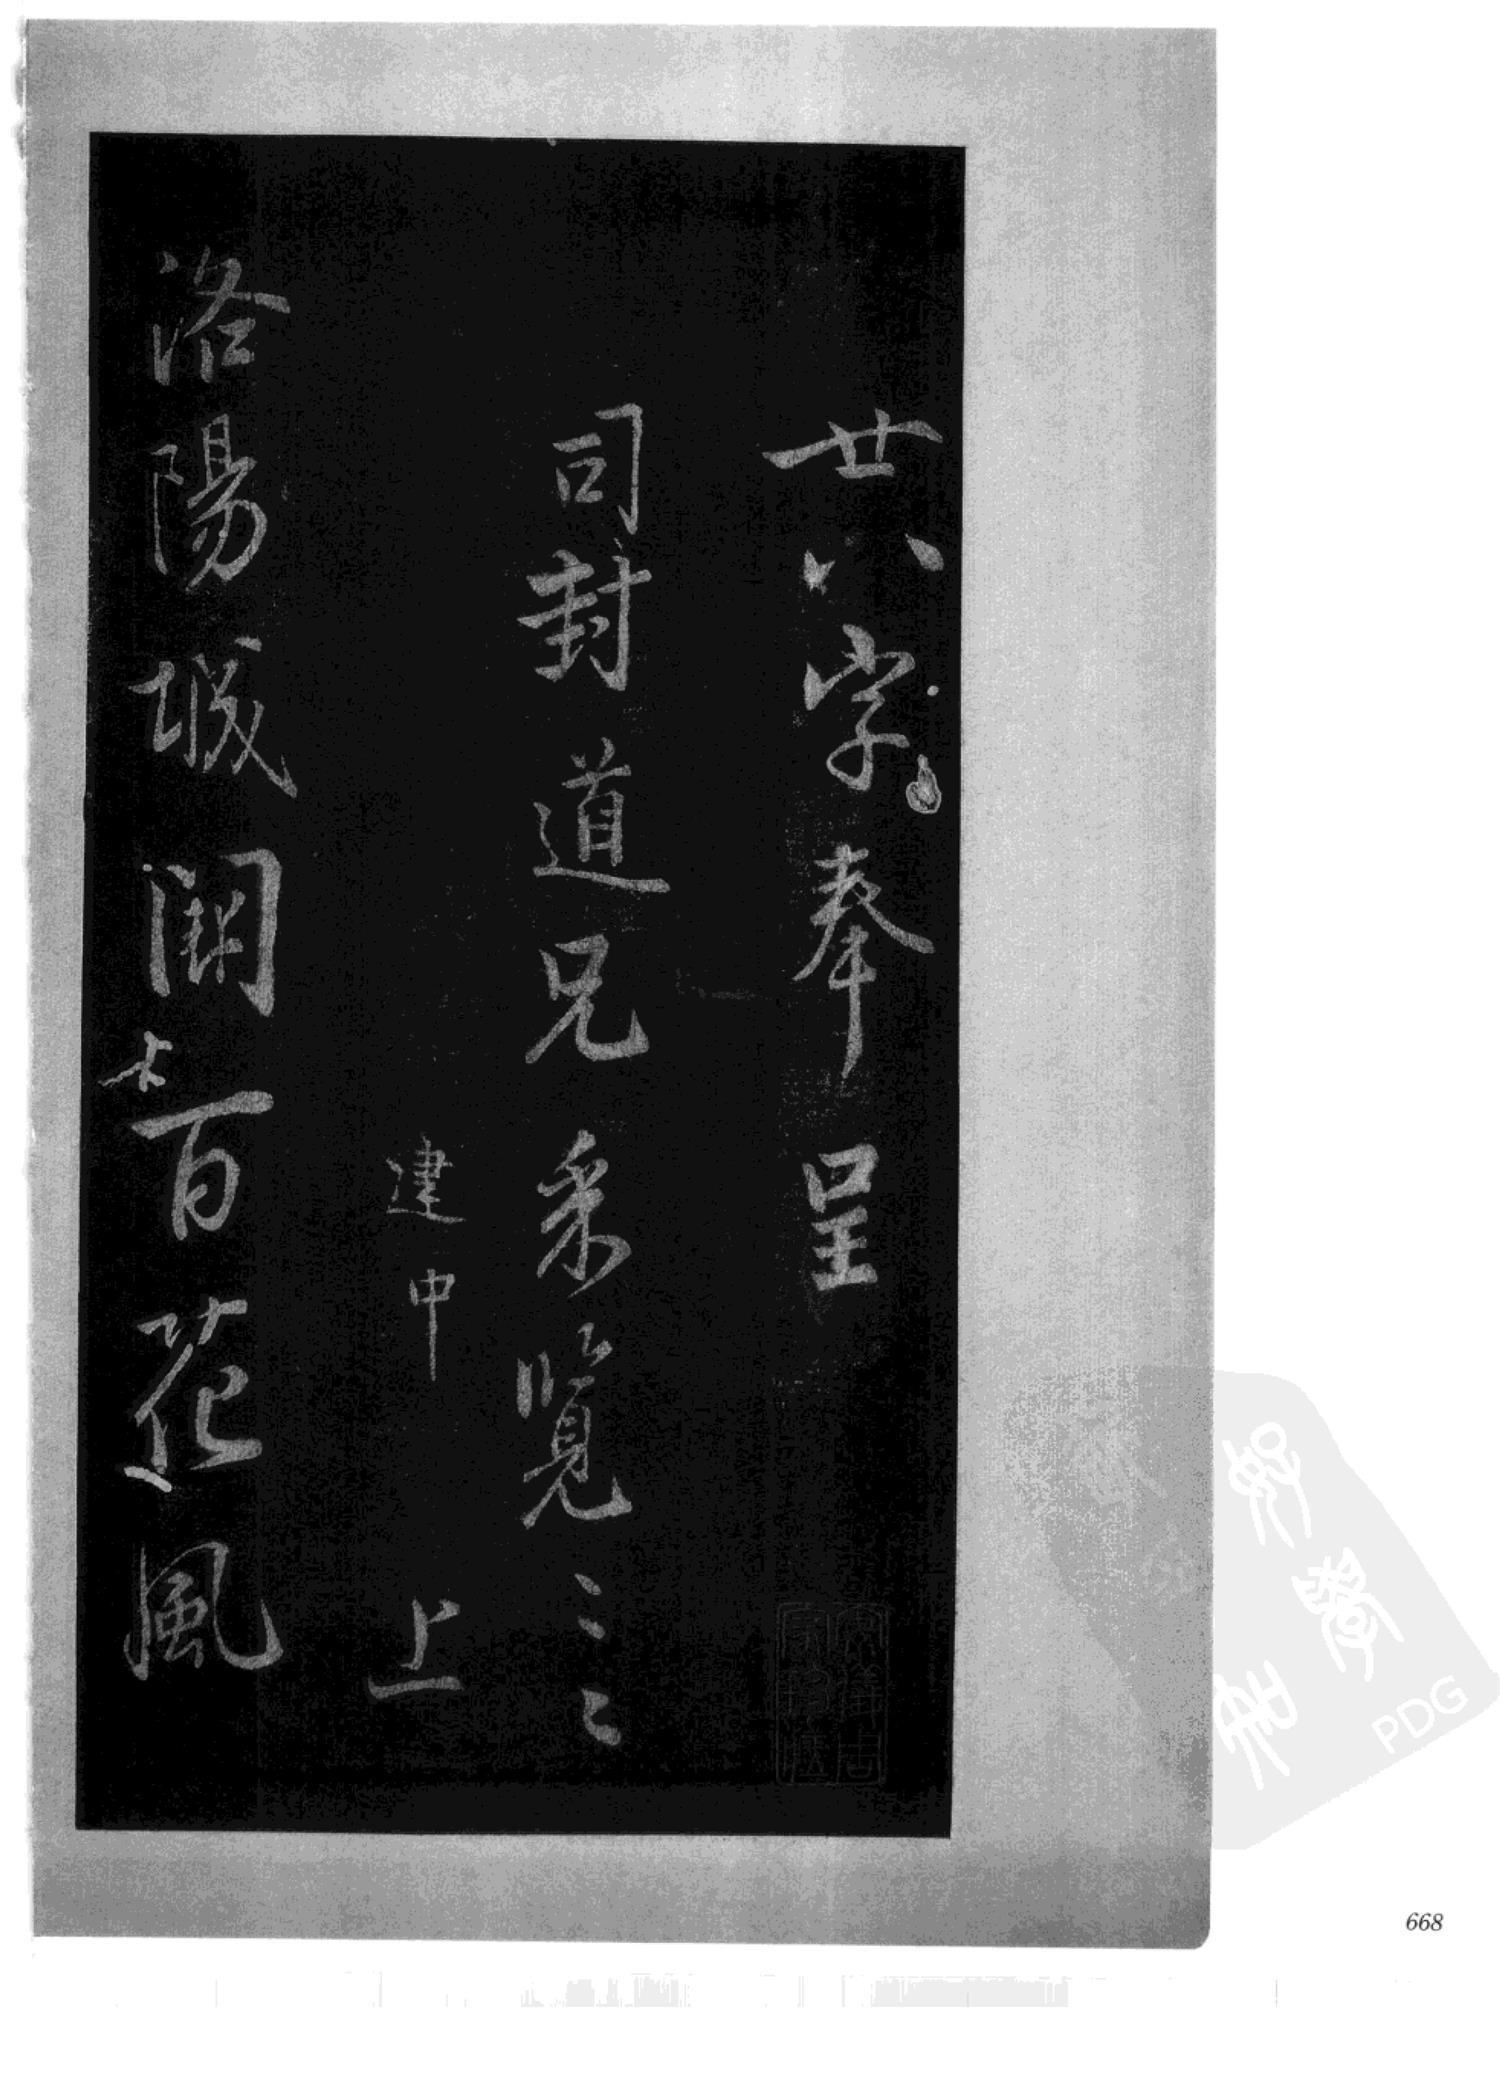 廿八字奉呈
司封道兄采覽〻〻
建中 上
洛陽城闕百花風
PDG
668